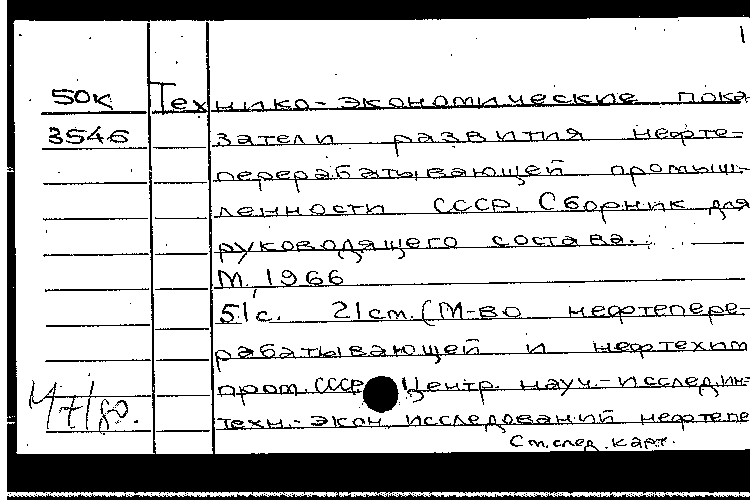 1
50к Технико-экономические пока
3546 затели развития нефте-
перерабатывающей промыш-
ленности СССР. Сборник для
руководящего состава.
М, 1966
51с. 21см. (М-во нефтепере-
рабатывающей и нефтехим
пром. СССР Центр. науч.-исслед. ин-
техн.-экон. исследований нефтепе
См. след. карт.